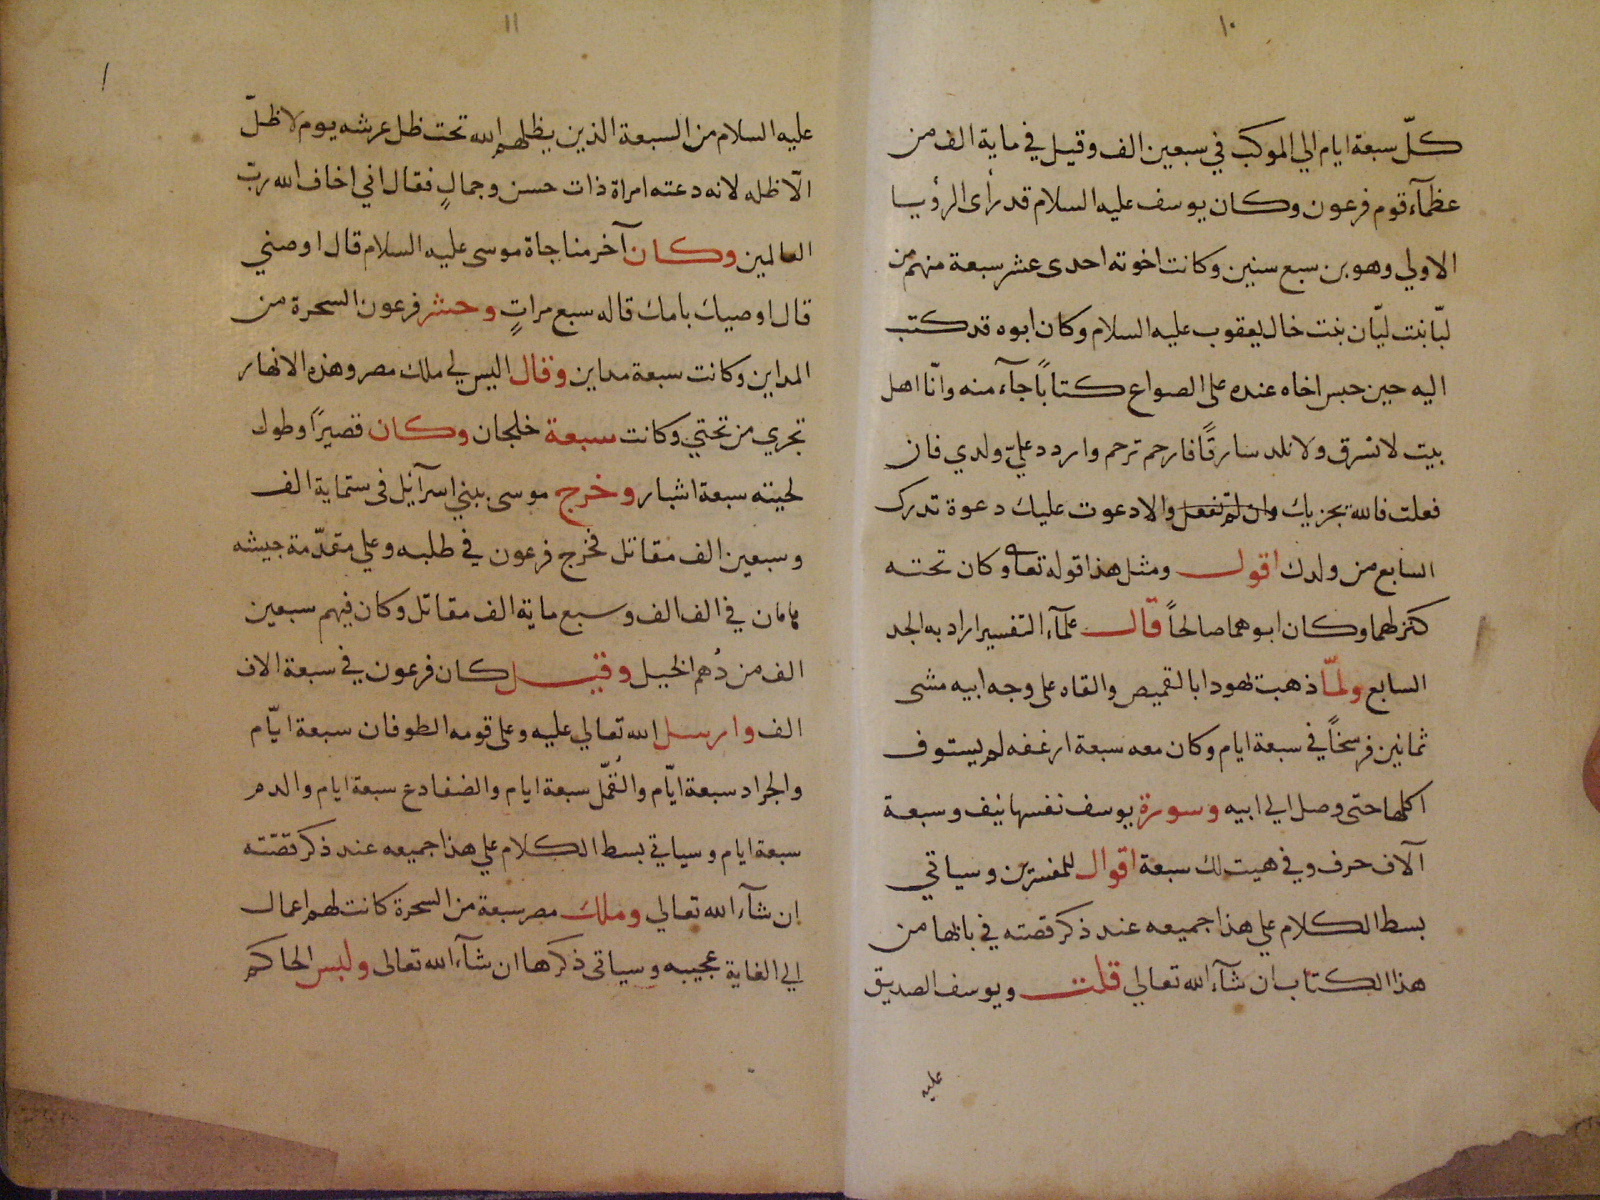 ١٠
كلّ سبعة ايام الي الموكب في سبعين الف وقيل في ماية الف من
عظمآء قوم فرعون وكان يوسف عليه السلام قد رأى الرؤيا
الاولي وهو بن سبع سنين وكانت اخوته احدى عشر سبعة منهم من
لبّا بنت ليّان بنت خال يعقوب عليه السلام وكان ابوه قد كتب
اليه حين حبس اخاه عنده على الصواع كتاباً جآء منه وانّا اهل
بيت لا نسرق ولا نلد سارقًا فارحم ترحم واردد عليّ ولدي فان
فعلت فالله يجزيك وان لم تفعل والا دعوت عليك دعوة تدرك
السابع من ولدك اقول ومثل هذا قوله تعا وكان تحته
كنز لهما وكان ابوهما صالحاً قال علمآء التفسير اراد به الجد
السابع ولمّا ذهبت يهودا بالقميص والقاه على وجه ابيه مشى
ثمانين فرسخاً في سبعة ايام وكان معه سبعة ارغفه لم يستوف
اكلها حتى وصل الي ابيه وسورة يوسف نفسها نيف وسبعة
آلاف حرف وفي هيت لك سبعة اقوال للمفسرين وسياتي
بسط الكلام علي هذا جميعه عند ذكر قصته في بابها من
هذا الكتاب ان شآء الله تعالي قلت ويوسف الصديق
عليه
١١
عليه السلام من السبعة الذين يظلهم الله تحت ظل عرشه يوم لا ظلّ
الّا ظله لانه دعته امراة ذات حسن وجمالٍ فقال اني اخاف الله ربّ
العالمين وكان آخر مناجاة موسى عليه السلام قال اوصني
قال اوصيك بامك قاله سبع مراتٍ وحشر فرعون السحرة من
المداين وكانت سبعة مداين وقال اليس لي ملك مصر وهذه الانهار
تجري من تحتي وكانت سبعة خلجان وكان قصيرًا وطول
لحيته سبعة اشبار وخرج موسى ببني اسرآئيل في ستماية الف
وسبعين الف مقاتل فخرج فرعون في طلبه وعلي مقدّمة جيشه
هامان في الف الف وسبع ماية الف مقاتل وكان فيهم سبعين
الف من دُهم الخيل وقيل كان فرعون في سبعة الاف
الف وارسل الله تعالي عليه وعلى قومه الطوفان سبعة ايّام
والجراد سبعة ايّام والقُمّل سبعة ايام والضفادع سبعة ايام والدم
سبعة ايام وسياتي بسط الكلام علي هذا جميعه عند ذكر قصّته
ان شآء الله تعالي وملك مصر سبعة من السحرة كانت لهم اعمال
الي الغاية عجيبه وسياتى ذكرها ان شآء الله تعالى ولبس الحاكم